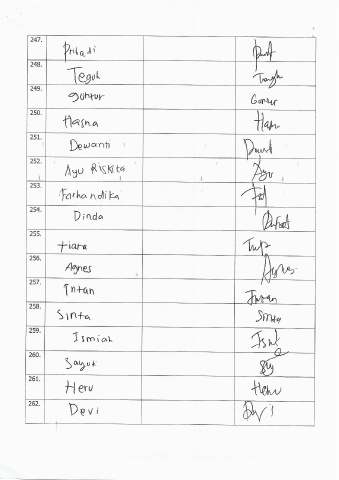 247. Pribadi
248. Teguh
249. guntur Guntur
250. Hasna Hasna
251. Dewanti
252. Ayu Riskita Ayu
253. Farhandika
254. Dinda
255. tiara
256. Agnes Agnes
257. Intan Intan
258. Sinta Sinta
259. Ismiah
260. Sayuti
261. Heru Heru
262. Devi Devi